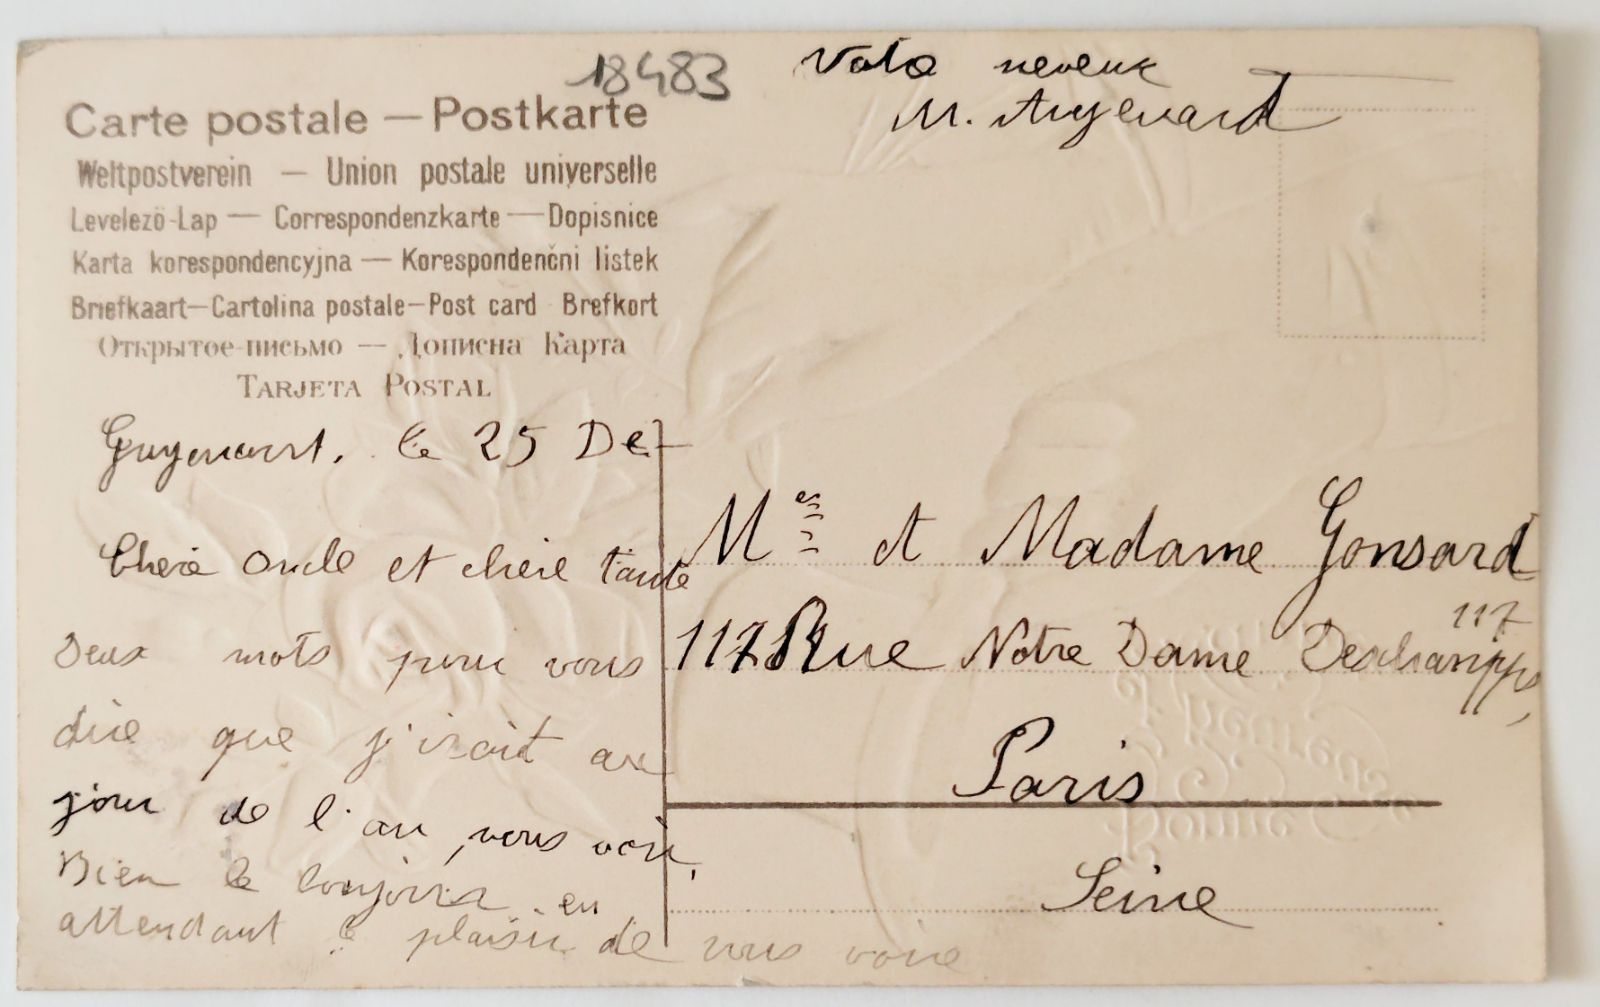 18483
Carte postale — Postkarte
Weltpostverein — Union postale universelle
Levelezö-Lap — Correspondenzkarte — Dopisnice
Karta korespondencyjna — Korespondenčni listek
Briefkaart — Cartolina postale — Post card Brefkort
Открытое-письмо — Дописна Карта
TARJETA POSTAL
neveux
M.
le 25 De
Chère oncle et chère tante
Deux mots pour vous
dire que j'irait au
jour de l'an vous voir,
Bien le bonjour en
attendant le plaisir de vous voire
Mes et Madame Gonsard
117 Rue Notre Dame Deschamps,
117
Paris
Seine